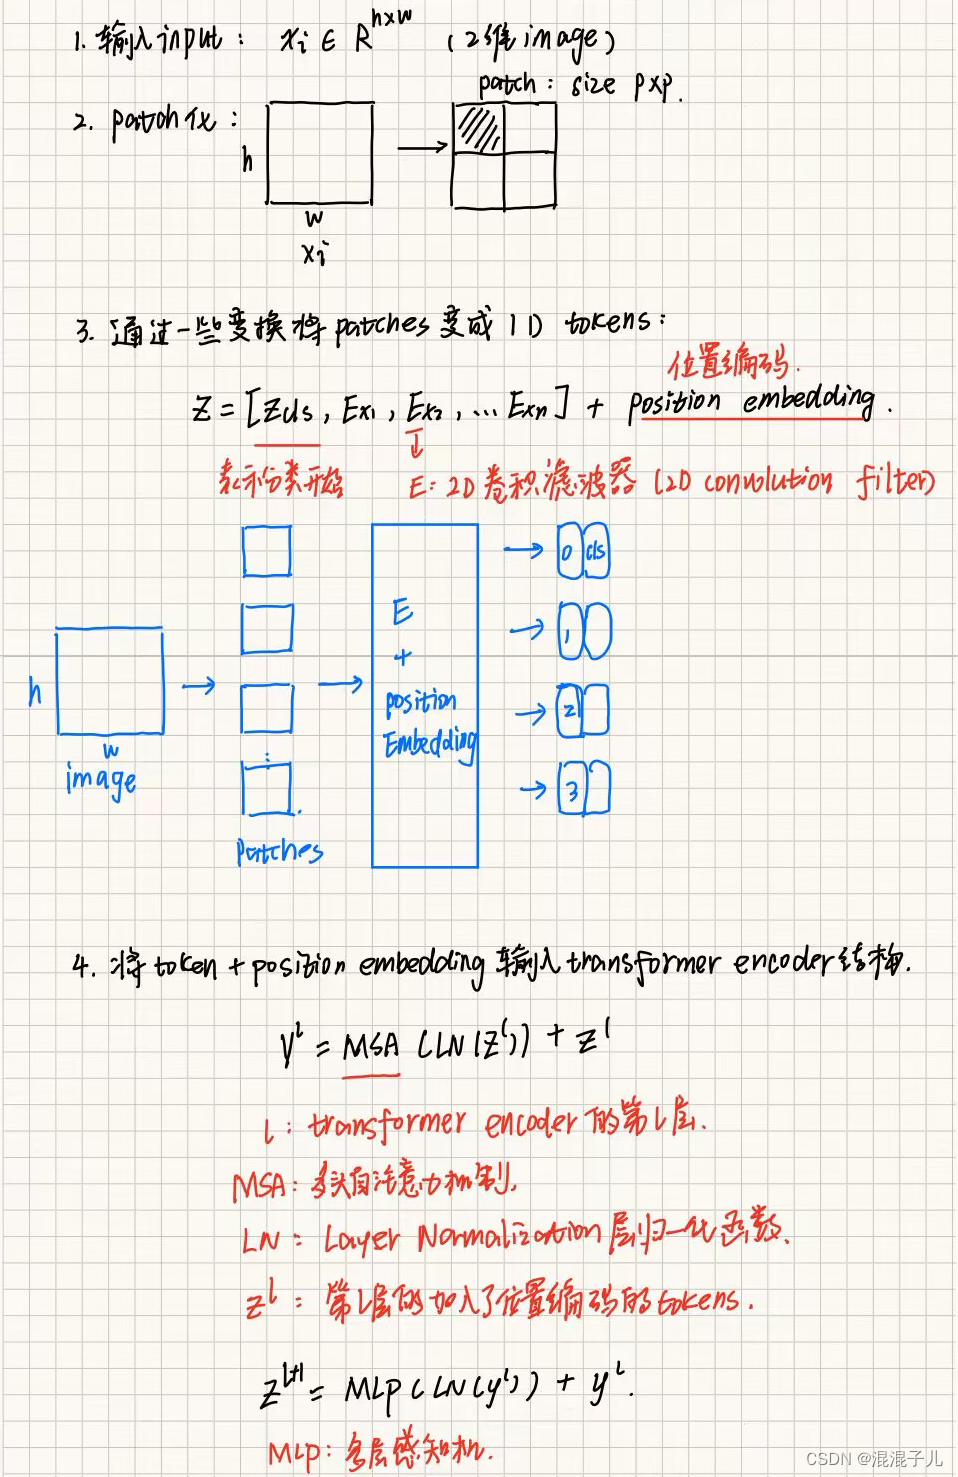 1. 输入input: xᵢ ∈ R^{h×w} (2维image)
patch: size p×p.
2. patch化:
h
w
xᵢ
3. 通过一些变换将patches变成1D tokens:
位置编码.
Z = [Zcls, Ex₁, Ex₂, ... Exn] + position embedding.
表示分类开始
E: 2D卷积滤波器 (2D convolution filter)
0 cls
1
2
3
E
+
position
Embedding
h
w
image
patches
4. 将token + position embedding 输入transformer encoder结构.
y^l = MSA (LN(Z^l)) + z^l
l: transformer encoder的第l层.
MSA: 多头自注意力机制.
LN: Layer Normalization 层归一化函数.
z^l: 第l层的加入了位置编码的tokens.
z^{l+1} = MLP (LN(y^l)) + y^l.
MLP: 多层感知机.
CSDN @混混子儿